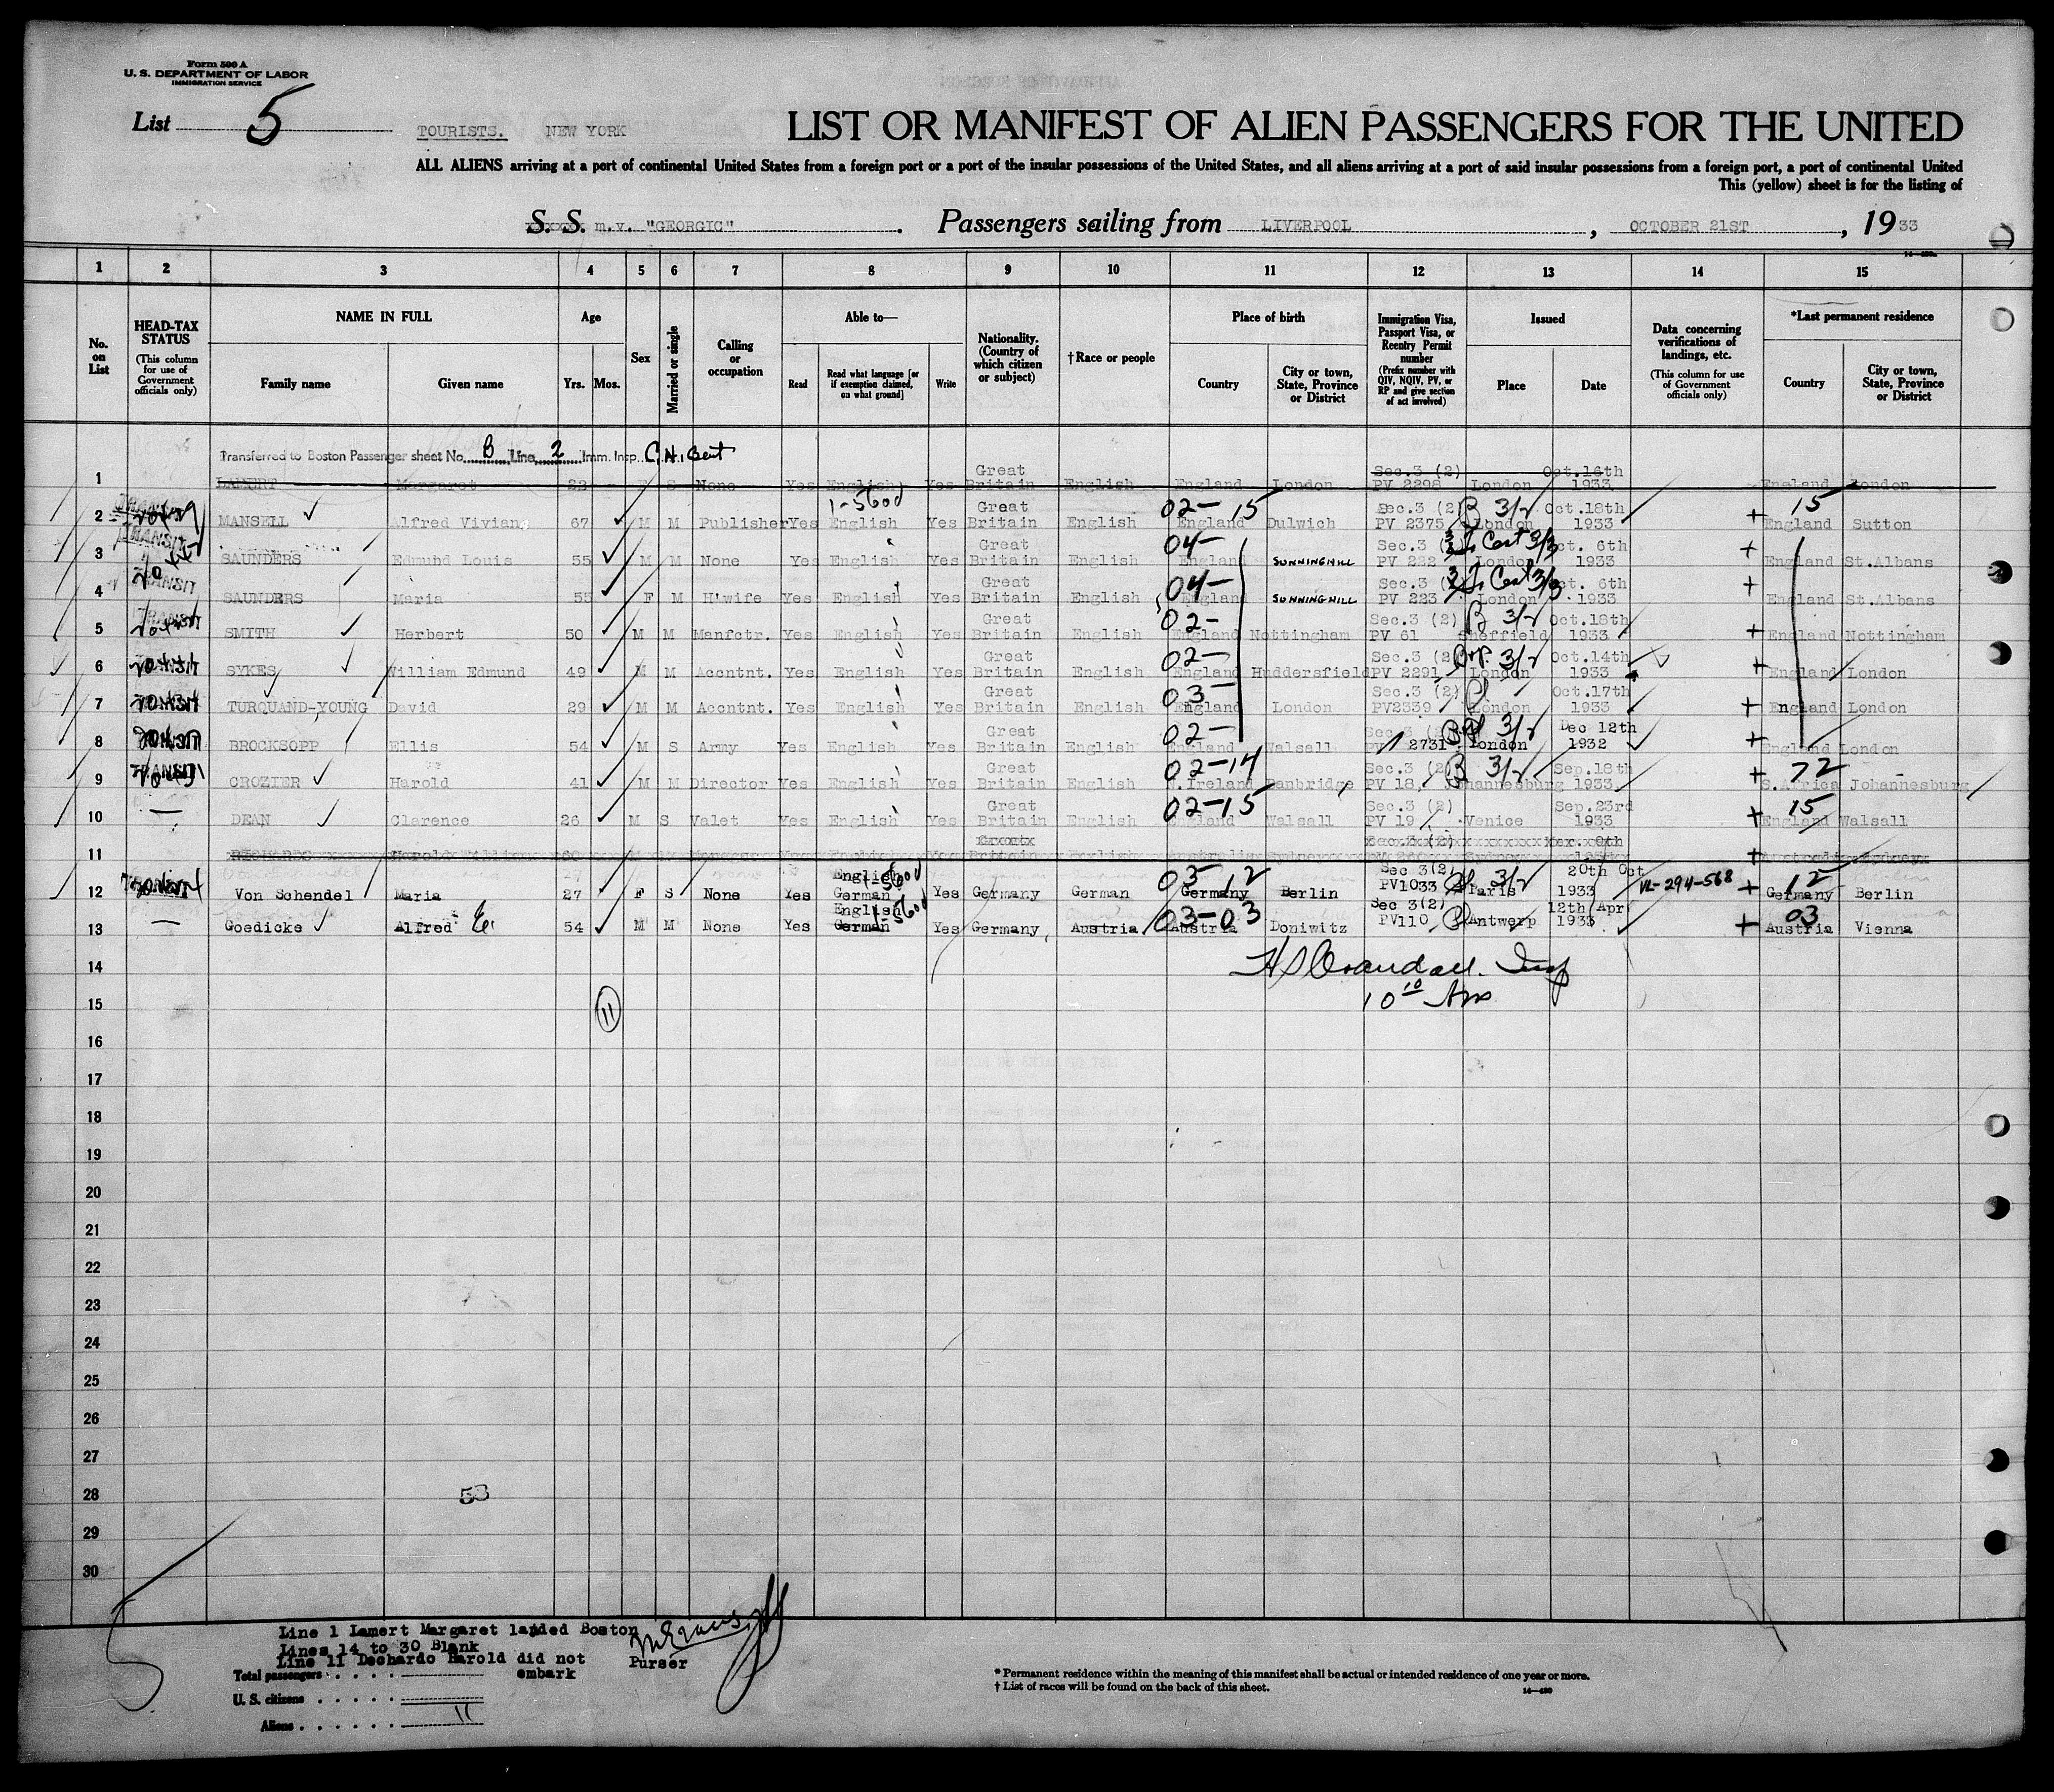 Form 500 A
U. S. DEPARTMENT OF LABOR
IMMIGRATION SERVICE
List 5
TOURISTS. NEW YORK
LIST OR MANIFEST OF ALIEN PASSENGERS FOR THE UNITED
ALL ALIENS arriving at a port of continental United States from a foreign port or a port of the insular possessions of the United States, and all aliens arriving at a port of said insular possessions from a foreign port, a port of continental United
This (yellow) sheet is for the listing of
S. S. m.v. "GEORGIC". Passengers sailing from LIVERPOOL, OCTOBER 21ST, 1933
1 2 3 4 5 6 7 8 9 10 11 12 13 14 15
No. on List
HEAD-TAX STATUS (This column for use of Government officials only)
NAME IN FULL Family name Given name
Age Yrs. Mos.
Sex
Married or single
Calling or occupation
Able to— Read Read what language [or if exemption claimed, on what ground] Write
Nationality. (Country of which citizen or subject)
†Race or people
Place of birth Country City or town, State, Province or District
Immigration Visa, Passport Visa, or Reentry Permit number (Prefix number with QIV, NQIV, PV, or RP and give section of act involved)
Issued Place Date
Data concerning verifications of landings, etc. (This column for use of Government officials only)
*Last permanent residence Country City or town, State, Province or District
Transferred to Boston Passenger sheet No. B Line 2 Imm. Insp. C.H. Bent
1 LAMERT Margaret 22 F S None Yes English Yes Great Britain English England London Sec.3 (2) PV 2298 London Oct.16th 1933 England London
2 TRANSIT MANSELL Alfred Vivian 67 M M Publisher Yes English 1-5600 Yes Great Britain English 02-15 England Dulwich Sec.3 (2) PV 2375 3/2 London Oct.18th 1933 + 15 England Sutton
3 TRANSIT SAUNDERS Edmund Louis 55 M M None Yes English Yes Great Britain English 04- England SUNNINGHILL Sec.3 PV 222 London Oct. 6th 1933 + England St.Albans
4 TRANSIT SAUNDERS Maria 55 F M H'wife Yes English Yes Great Britain English 04- England SUNNINGHILL Sec.3 PV 223 London Oct. 6th 1933 + England St.Albans
5 TRANSIT SMITH Herbert 50 M M Manfctr. Yes English Yes Great Britain English 02- England Nottingham Sec.3 (2) PV 61 3/2 Sheffield Oct.18th 1933 + England Nottingham
6 TRANSIT SYKES William Edmund 49 M M Accntnt. Yes English Yes Great Britain English 02- England Huddersfield Sec.3 (2) PV 2291 3/2 London Oct.14th 1933 + England London
7 TRANSIT TURQUAND-YOUNG David 29 M M Accntnt. Yes English Yes Great Britain English 03- England London Sec.3 (2) PV2339 London Oct.17th 1933 + England London
8 TRANSIT BROCKSOPP Ellis 54 M S Army Yes English Yes Great Britain English 02- England Walsall Sec.3 (2) PV 2731 3/2 London Dec 12th 1932 + England London
9 TRANSIT CROZIER Harold 41 M M Director Yes English Yes Great Britain English 02-14 N.Ireland Banbridge Sec.3 (2) PV 18 3/2 Johannesburg Sep.18th 1933 + 72 S.Africa Johannesburg
10 — DEAN Clarence 26 M S Valet Yes English Yes Great Britain English 02-15 England Walsall Sec.3 (2) PV 19 Venice Sep.23rd 1933 + 15 England Walsall
11 Harold William 60 Britain English +
12 TRANSIT Von Schendel Maria 27 F S None Yes English German 1-5600 Yes Germany German 03-12 Germany Berlin Sec 3(2) PV1033 3/2 Paris 20th Oct 1933 VL-294-568 + 12 Germany Berlin
13 — Goedicke Alfred E. 54 M M None Yes English German 1-5600 Yes Germany Austria 03-03 Austria Doniwitz Sec 3(2) PV110 Antwerp 12th Apr 1933 + 03 Austria Vienna
14
H S Crandall. Insp
15
11
10 10 Am
16
17
18
19
20
21
22
23
24
25
26
27
28
53
29
30
Line 1 Lamert Margaret landed Boston
Lines 14 to 30 Blank
Line 11 Dechardo Harold did not embark
Purser
Total passengers
U. S. citizens
Aliens 11
* Permanent residence within the meaning of this manifest shall be actual or intended residence of one year or more.
† List of races will be found on the back of this sheet.
14—480